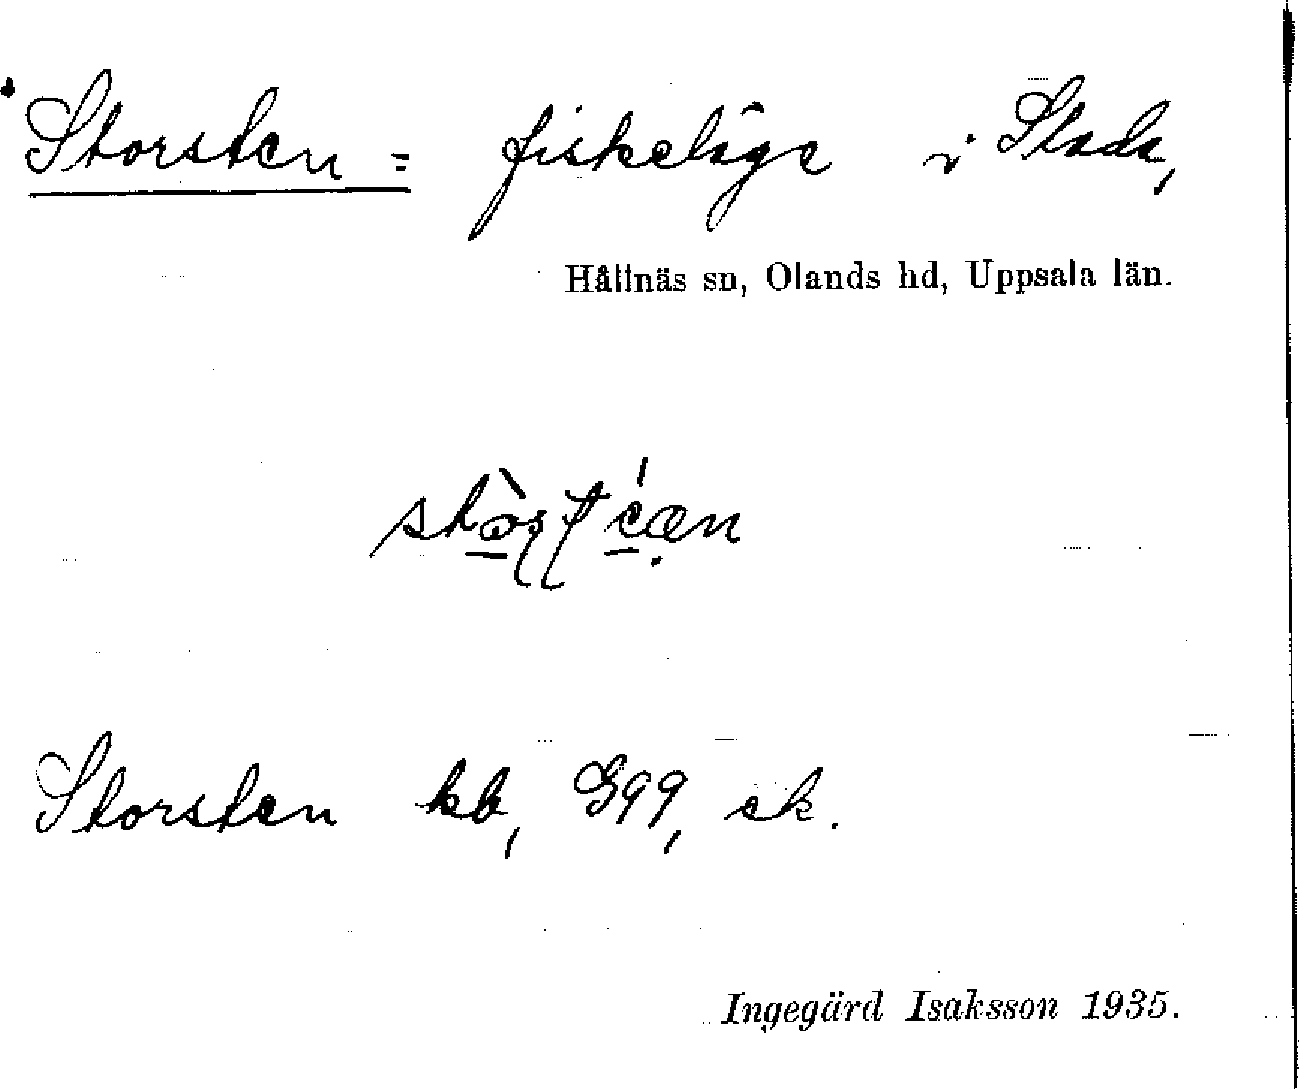 Storsten = fiskeläge i Slada,
Hållnäs sn, Olands hd, Uppsala län.
Storsten kb, G99, ek.
Ingegärd Isaksson 1935.